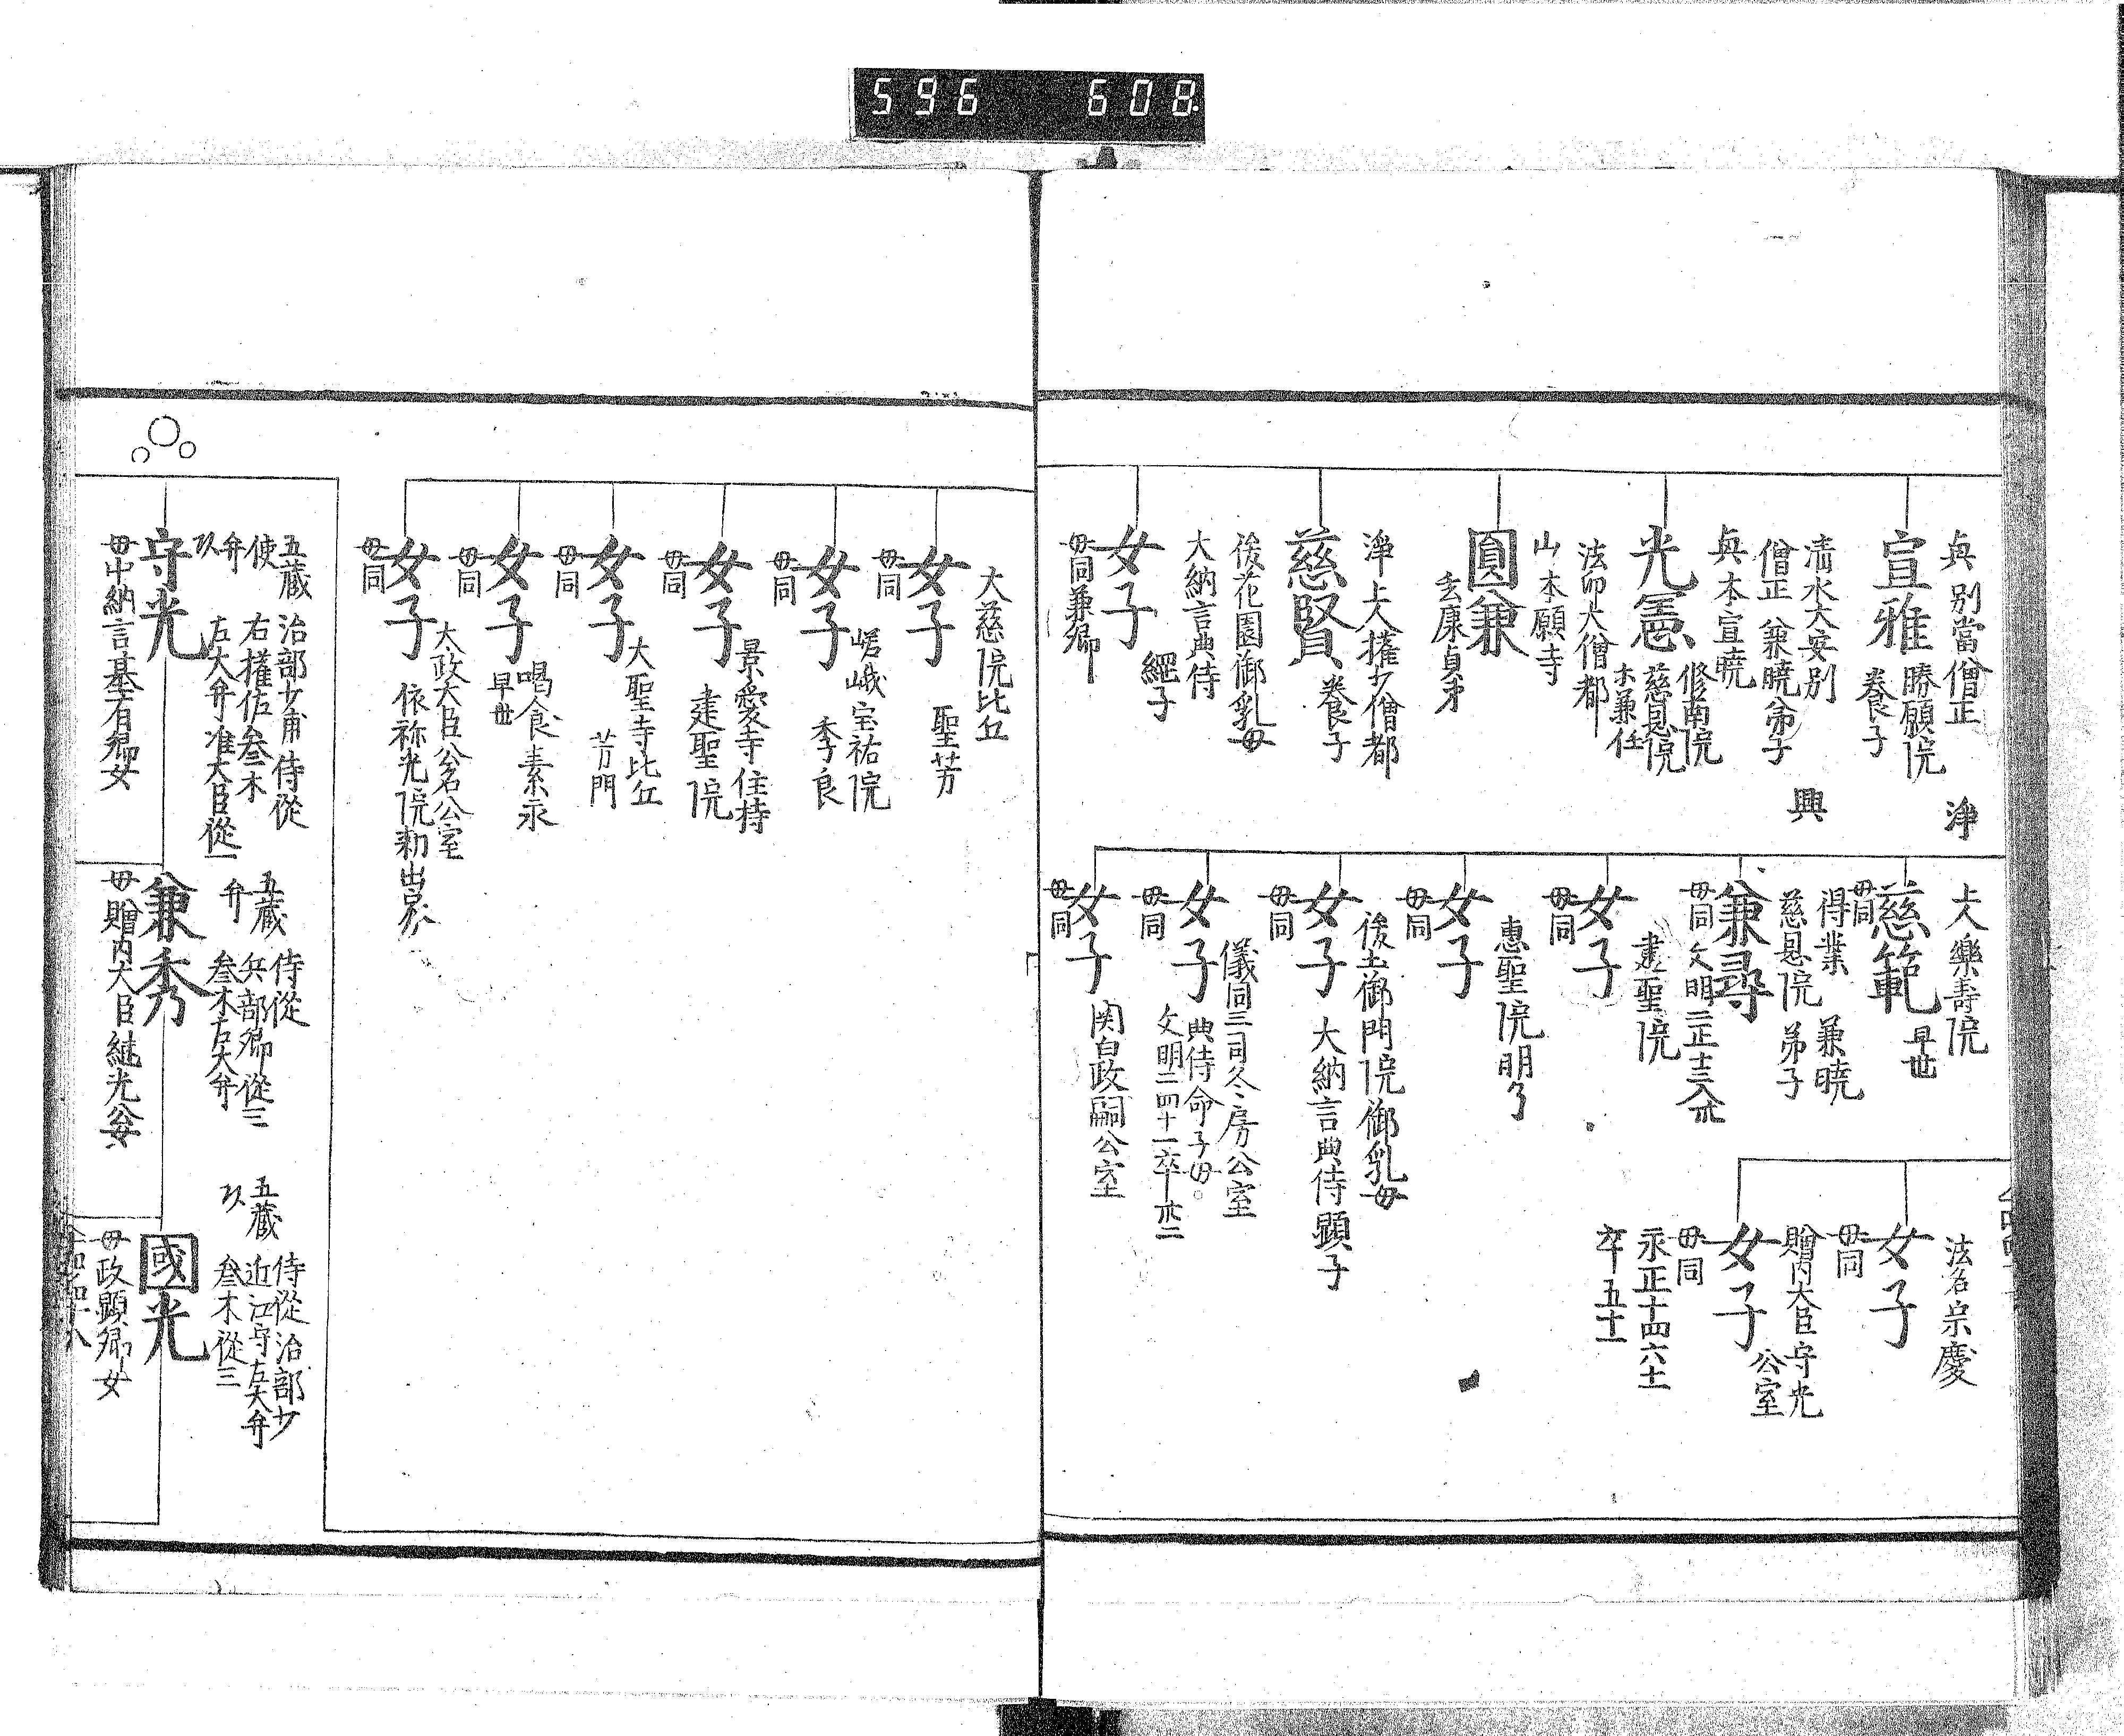 596 608
別當僧正
宣雅
勝願院
養子
清水大安別
僧正 兼曉弟子
本宣曉
光憲
修南院
慈恩院
兼任
法印大僧都
山本願寺
圓兼
玄康真弟
淨土人權少僧都
慈賢
養子
後花園御乳母
大納言典侍
女子
繩子
母同兼卿
淨
興
大樂壽院
慈範
早世
母同
得業 兼曉
慈恩院 弟子
兼尋
母同 文明二正十三入
建聖院
女子
母同
惠聖院明了
女子
母同
後土御門院御乳母
女子
大納言典侍顕子
母同
儀同三司冬房公室
女子
典侍命子母。
母同
文明二四十一卒
女子
母同
関白政嗣公室
法名宗慶
女子
母同
贈内大臣守光
公室
女子
母同
永正十四六十一
卒 五十一
大慈院比丘
女子
聖芳
母同
嵯峨宝祐院
女子
季良
母同
景愛寺住持
女子
建聖院
母同
大聖寺比丘
女子
芳門
母同
喝食素永
女子
早世
母同
太政大臣公名公室
女子
依称光院勅出家
母同
五蔵
治部少甫侍從
使
右權佐叄木
弁
左大弁准大臣從一
守光
母中納言基有卿女
五蔵
侍從
弁
兵部卿從三
叄木右大弁
兼秀
母贈内大臣継光公女
五蔵
侍從治部少
近江守左大弁
叄木從三
國光
母政顕卿女